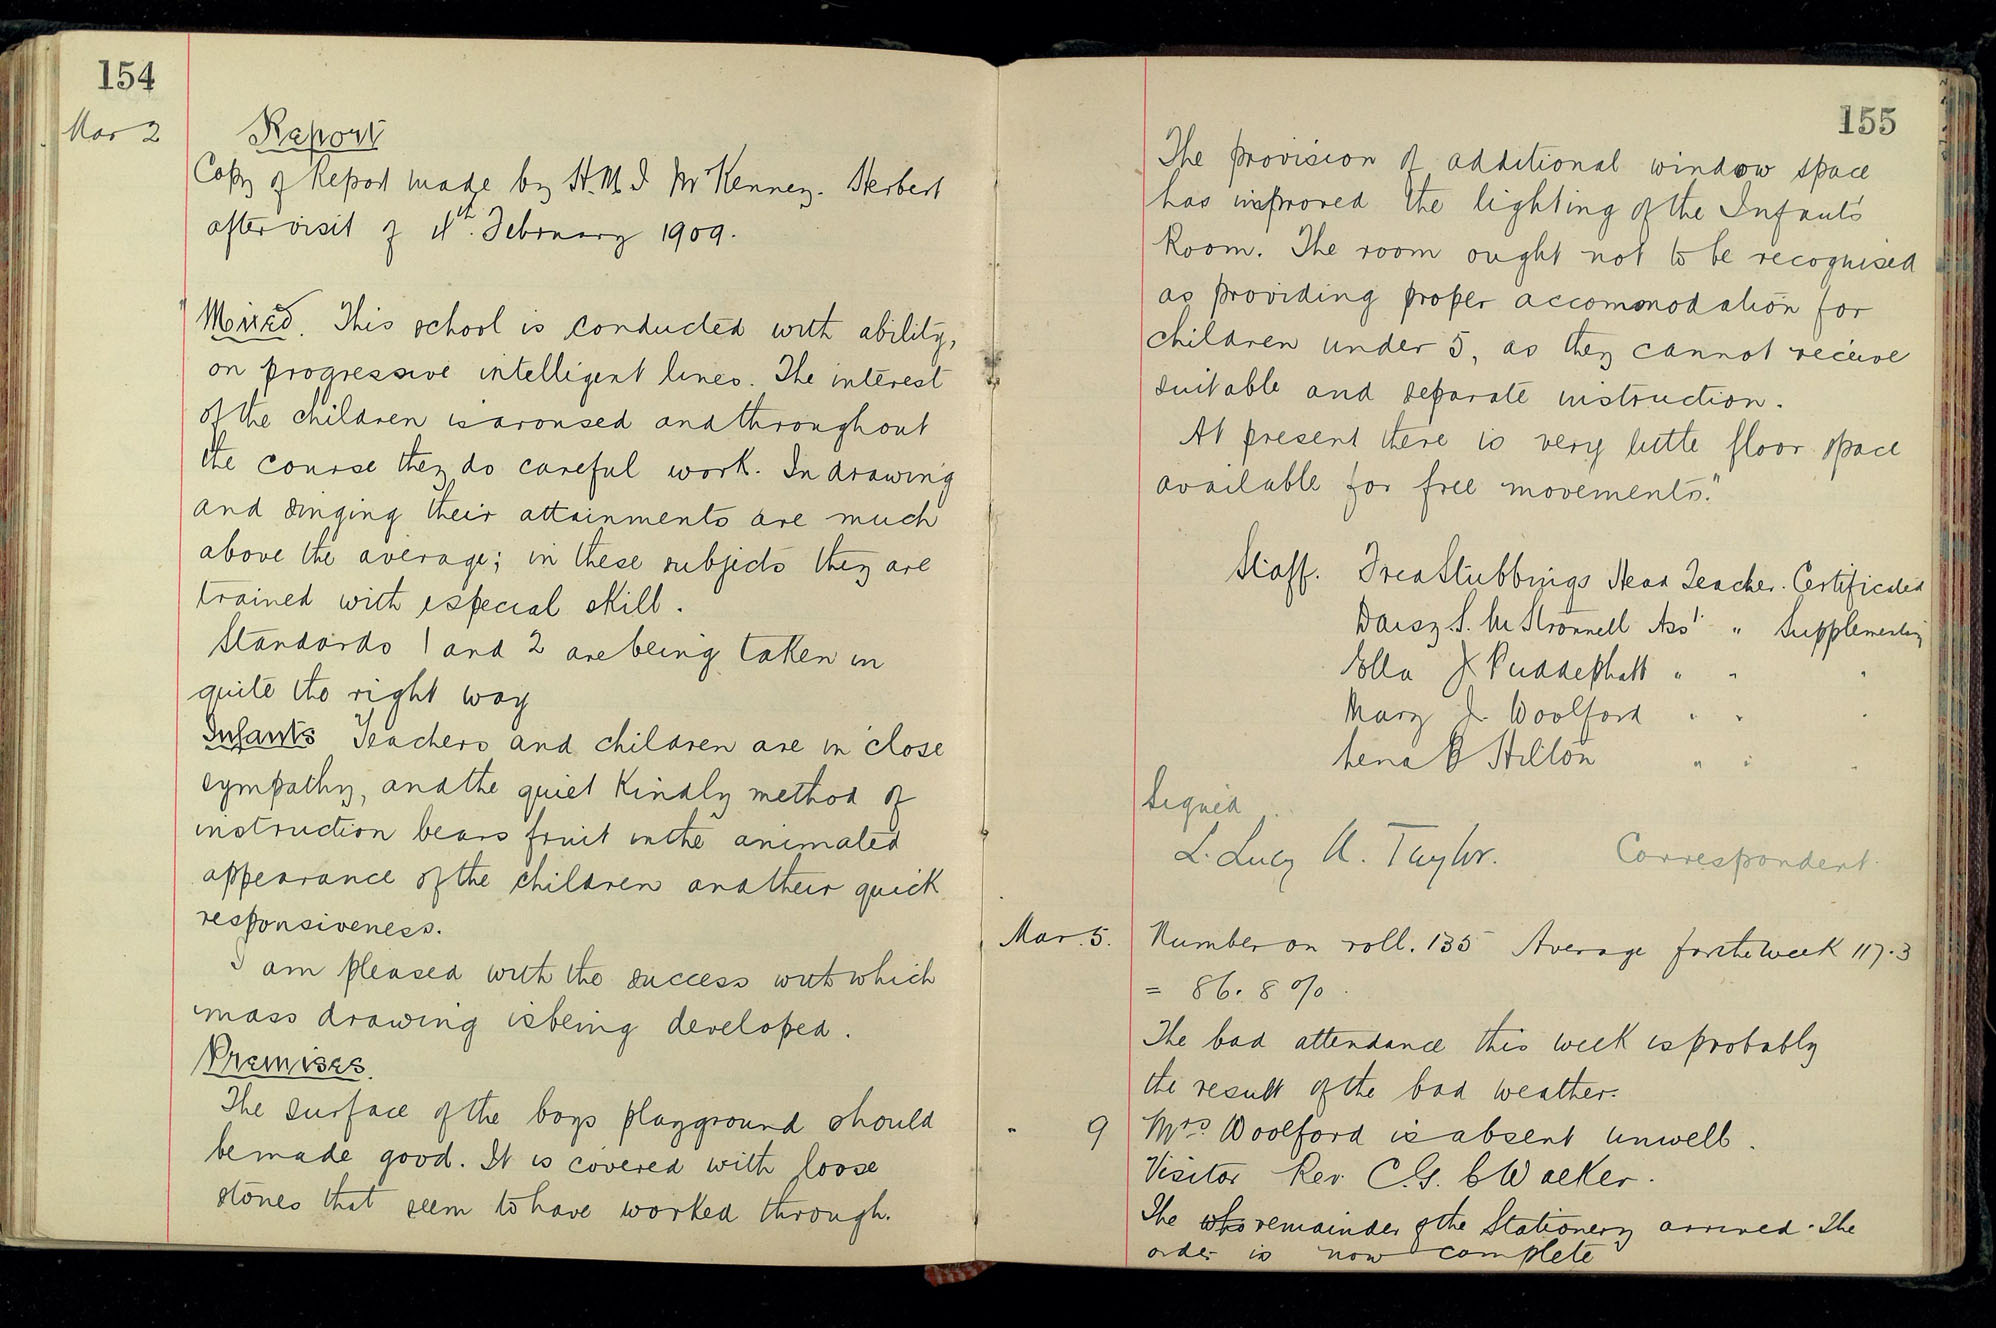 154
Mar 2
Report
Copy of Report made by H.M.I Mr Kenney. Herbert
after visit of 4th. February 1909.
"Mixed. This school is conducted with ability,
on progressive intelligent lines. The interest
of the children is aroused and throughout
the course they do careful work. In drawing
and singing their attainments are much
above the average; in these subjects they are
trained with especial skill.
Standards 1 and 2 are being taken in
quite the right way
Infants Teachers and children are in close
sympathy, and the quiet kindly method of
instruction bears fruit in the animated
appearance of the children and their quick
responsiveness.
I am pleased with the success with which
mass drawing is being developed.
Premises.
The surface of the boys playground should
be made good. It is covered with loose
stones that seem to have worked through.
155
The provision of additional window space
has improved the lighting of the Infants'
Room. The room ought not to be recognised
as providing proper accommodation for
children under 5, as they cannot receive
suitable and separate instruction.
At present there is very little floor space
available for free movements."
Staff. Stubbings Head Teacher. Certificated
Daisy S. Asst " Supplementary
Ella J Puddephatt " " "
Mary J. Woolford " " "
Lena B Hilton " " "
Signed
L. Lucy A. Taylor. Correspondent.
Mar. 5. Number on roll. 135 Average for the week 117.3
= 86.8%.
The bad attendance this week is probably
the result of the bad weather.
" 9 Mrs Woolford is absent unwell.
Visitor Rev. C.G. Walker.
The who remainder of the Stationery arrived. The
order is now complete